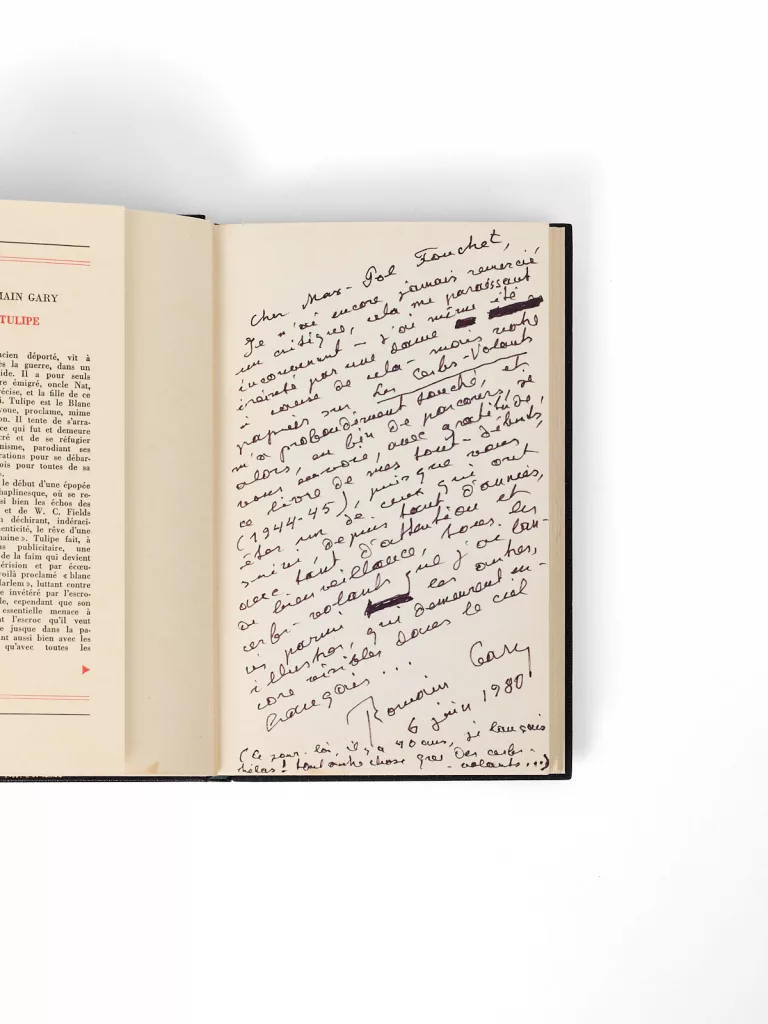 MAIN GARY
TULIPE
cien déporté, vit à
ès la guerre, dans un
ide. Il a pour seuls
re émigré, oncle Nat,
récise, et la fille de ce
i. Tulipe est le Blanc
voue, proclame, mime
on. Il tente de s'arra-
ce qui fut et demeure
cré et de se réfugier
nisme, parodiant ses
érations pour se débar-
ois pour toutes de sa
».
le début d'une épopée
haplinesque, où se re-
si bien les échos des
et de W. C. Fields
n déchirant, indéraci-
nenticité, le rêve d'une
aine ». Tulipe fait, à
us publicitaire, une
de la faim qui devient
érision et par écœu-
voilà proclamé « blanc
arlem », luttant contre
e invétéré par l'escro-
le, cependant que son
essentielle menace à
nt l'escroc qu'il veut
e jusque dans la pa-
nt aussi bien avec les
qu'avec toutes les
Cher Max-Pol Fouchet,
Je n'ai encore jamais remercié
un critique, cela me paraissant
inconvenant - j'ai même été
éreinté par une dame
à cause de cela - mais votre
papier sur Les Cerfs-Volants
m'a profondément touché, et
alors, en fin de parcours, je
vous envoie, avec gratitude,
ce livre de mes tout-débuts
(1944-45), puisque vous
êtes un de ceux qui ont
suivi depuis tant d'années,
avec tant d'attention et
de bienveillance, tous les
cerfs-volants que j'ai lan-
cés parmi les autres,
illustres, qui demeurent en-
core visibles dans le ciel
français...
Romain Gary
6 juin 1980
(Ce jour-là, il y a 40 ans, je lançais
hélas! tout autre chose que des cerfs-
volants...)